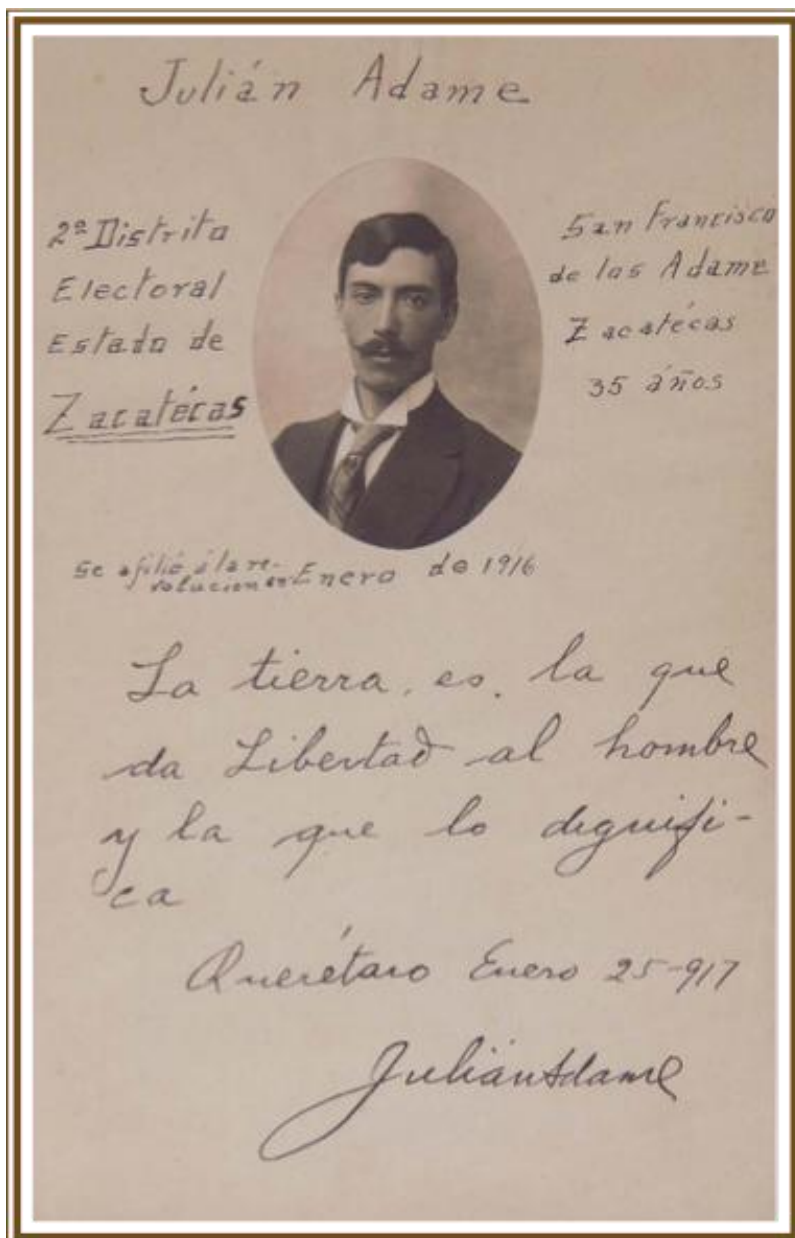 Julián Adame
2º Distrito
Electoral
Estado de
Zacatécas
San Francisco
de los Adame
Zacatécas
35 áños
Se afilió á la re-
volucion en Enero de 1916
La tierra, es, la que
da Libertad al hombre
y la que lo dignifi-
ca
Querétaro Enero 25-917
Julián Adame